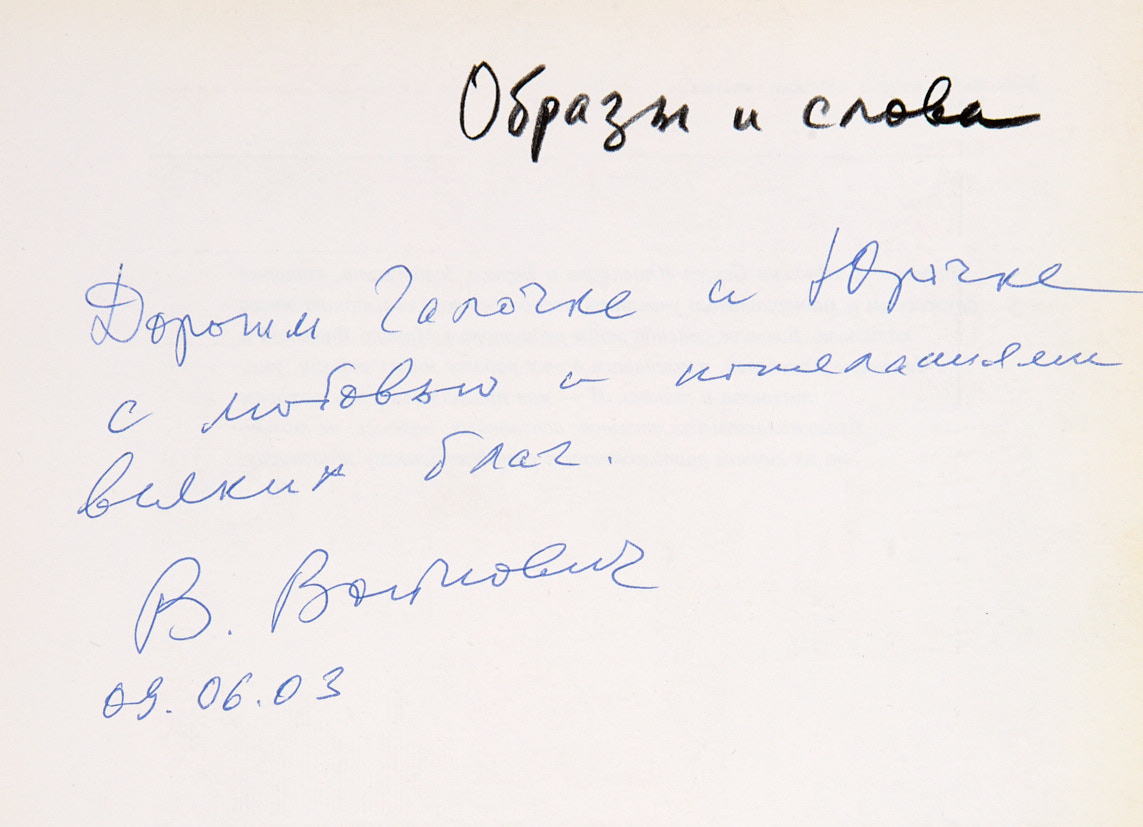 Образы и слова
Дорогим Галочке и Юрочке
с любовью и пожеланиями
всяких благ.
В. Войткович
09.06.03